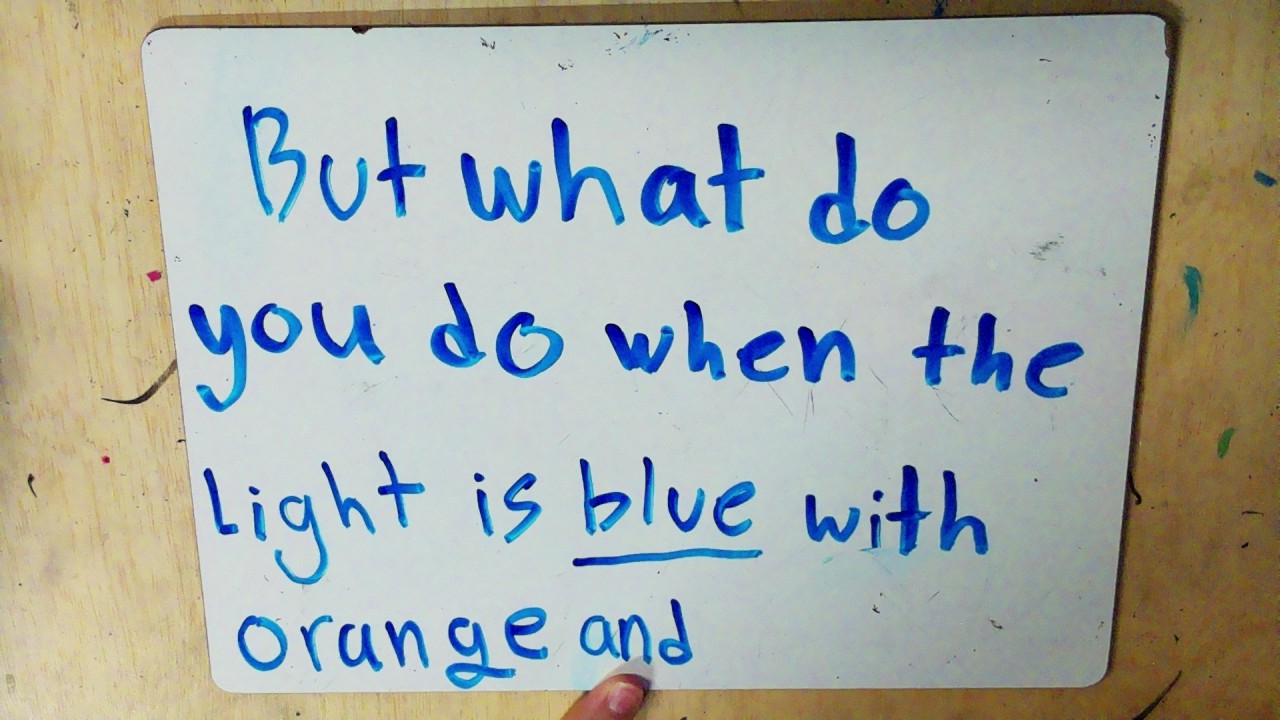 But what do
you do when the
Light is blue with
orange and